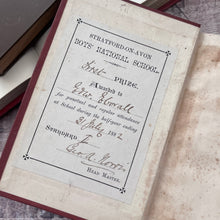 STRATFORD-ON-AVON
BOYS' NATIONAL SCHOOL.
First PRIZE.
Awarded to
for punctual and regular attendance
at School during the half-year ending
21 July 1882
STANDARD I
HEAD MASTER.